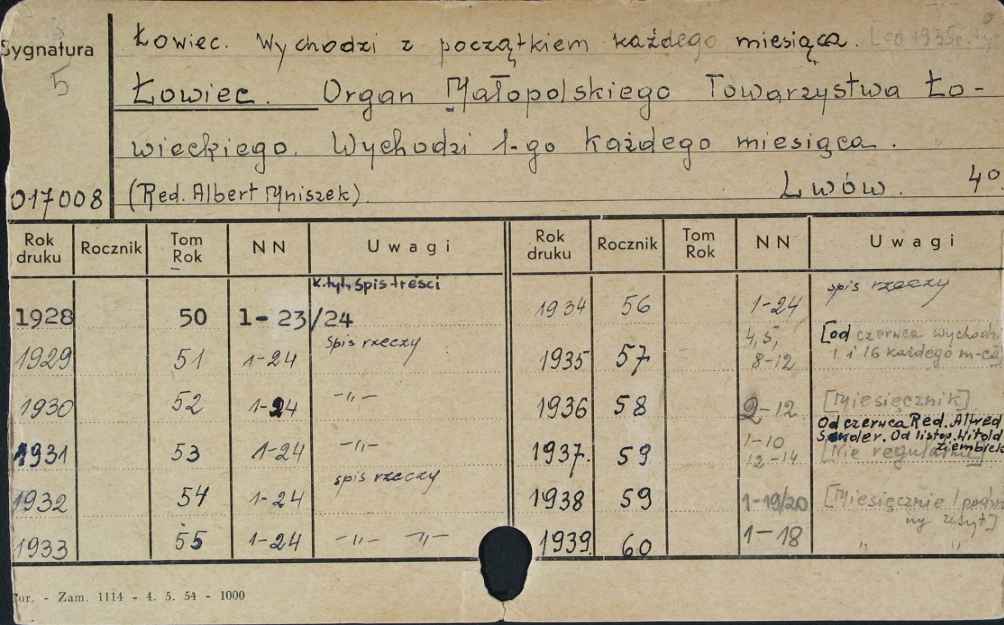 Sygnatura
5
017008
Łowiec. Wychodzi z początkiem każdego miesiąca.
Łowiec. Organ Małopolskiego Towarzystwa Ło-
wieckiego. Wychodzi 1-go każdego miesiąca.
(Red. Albert Mniszek) Lwów. 4°
Rok druku Rocznik Tom Rok NN Uwagi Rok druku Rocznik Tom Rok NN Uwagi
1928 50 1-23/24 k. tyt., spis treści
1929 51 1-24 spis rzeczy
1930 52 1-24 -„-
1931 53 1-24 -„-
1932 54 1-24 spis rzeczy
1933 55 1-24 -„- -„-
1934 56 1-24 spis rzeczy
1935 57 4, 5, 8-12 [od czerwca wychodzi
1. i 16 każdego m-ca
1936 58 2-12 [Miesięcznik]
1937. 59 1-10
12-14 Od czerwca Red. Alfred
Od listop. Witold
Ziembicki
[Nie regularnie]
1938 59 1-19/20 [Miesięcznie
zeszyt]
1939. 60 1-18 „ „
- Zam. 1114 - 4. 5. 54 - 1000